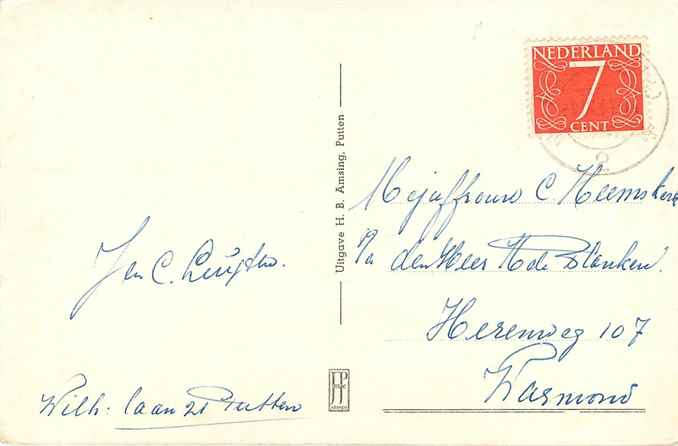 NEDERLAND
7
CENT
2
Uitgave H. B. Amsing, Putten
Mejuffrouw C. Heemskerk
p/a den Heer H de Blanken.
Herenweg 107
Warmond
Jan C. Luijten.
Wilh. laan 21 Putten
JP